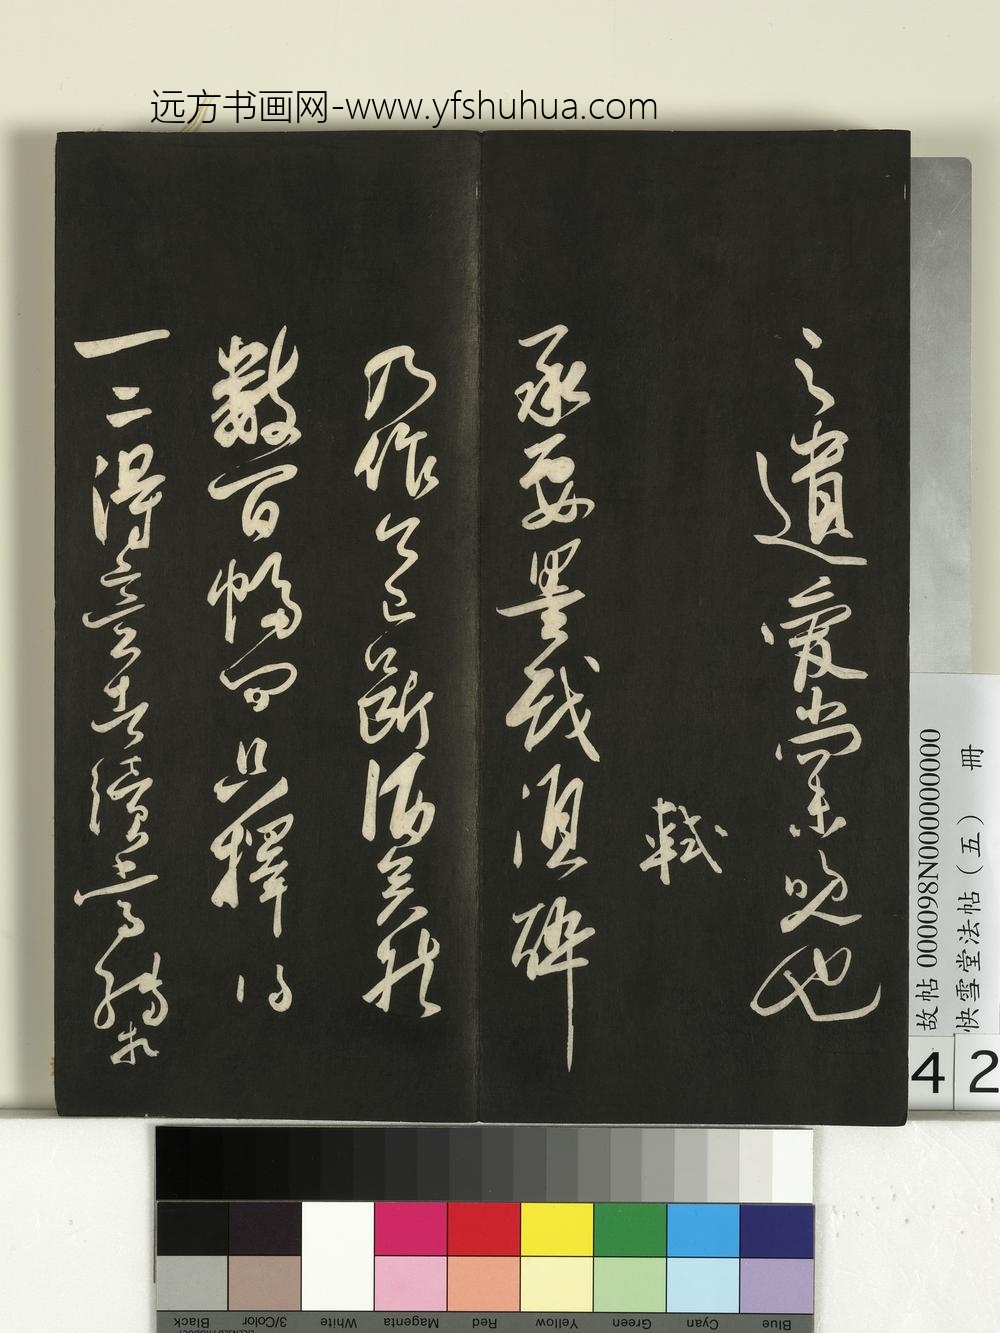 远方书画网-www.yfshuhua.com
之遺愛棠晚也
軾
承要墨戲須醉
乃作今已斷酒矣於
數百幅間只擇得
一二得意者續
故帖 000098N000000000
快雪堂法帖（五） 冊
4 2
Blue Cyan Green Yellow Red Magenta White 3/Color Black